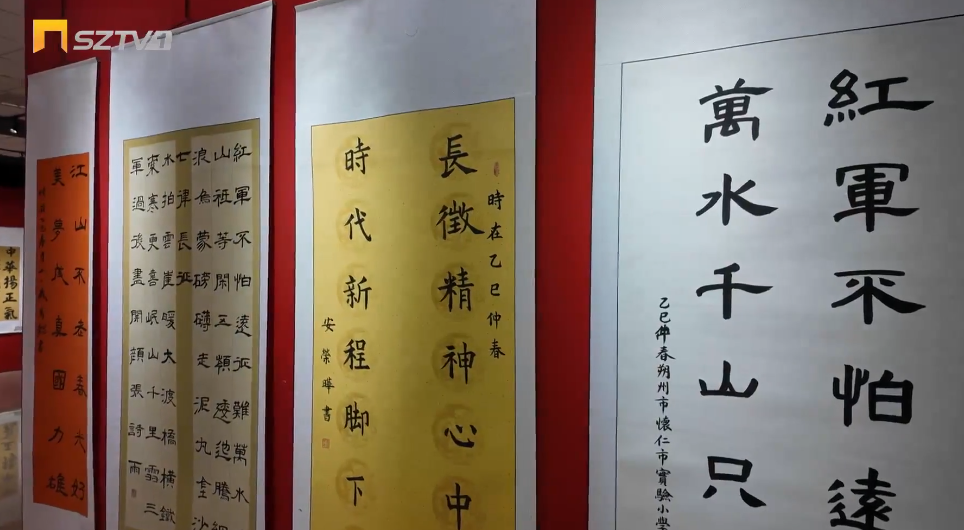 SZTV1
紅軍不怕遠
萬水千山只
乙巳仲春朔州市懷仁市實驗小學
時在乙巳仲春
長徵精神心中
時代新程脚下
安榮曄書
紅軍不怕遠征難萬水
山祗等閑五嶺逶迤騰細
浪烏蒙磅礴走泥丸金沙
七律長征
水拍雲崖暖大渡橋橫鐵
索寒更喜岷山千里雪三
軍過後盡開顏張詩雨
江山不老春光好
美夢成真國力雄
中華揚正氣